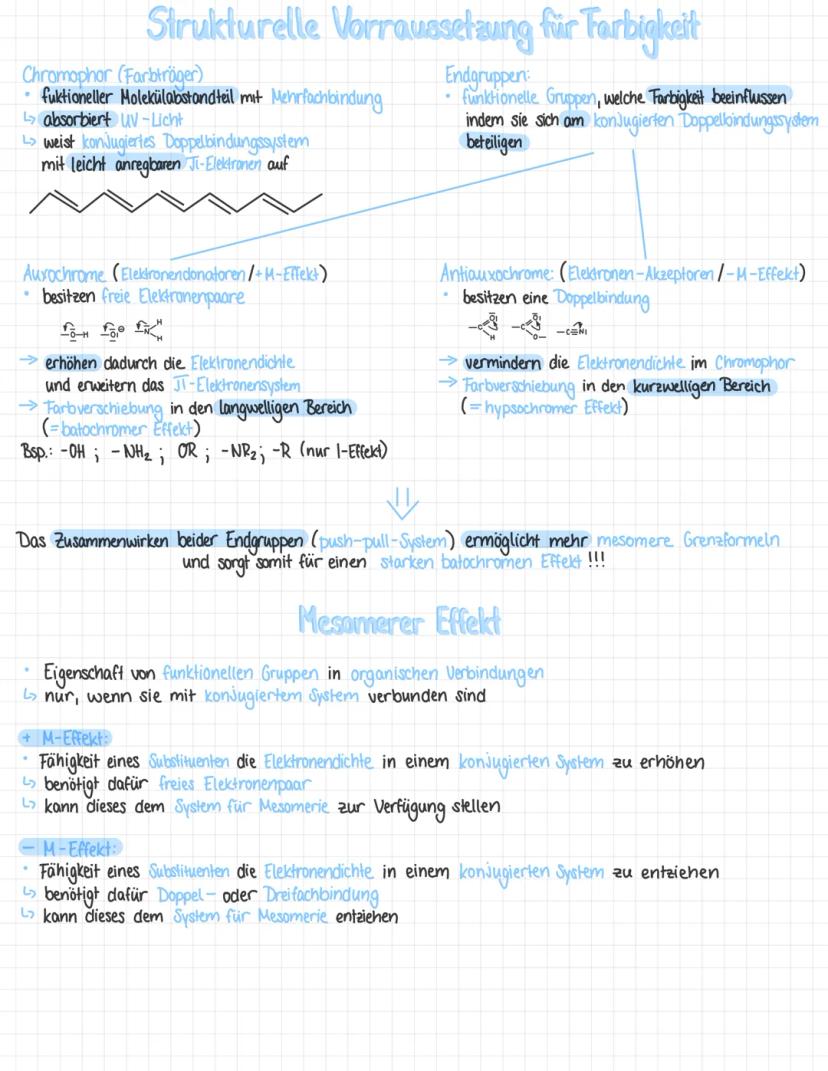 Strukturelle Vorraussetzung für Farbigkeit
Chromophor (Farbträger)
• fuktioneller Molekülabstandteil mit Mehrfachbindung
↳ absorbiert UV-Licht
↳ weist konjugiertes Doppelbindungssystem
mit leicht anregbaren π-Elektronen auf
Endgruppen:
• funktionelle Gruppen, welche Farbigkeit beeinflussen
indem sie sich am konjugierten Doppelbindungssystem
beteiligen
Auxochrome (Elektronendonatoren/+M-Effekt)
• besitzen freie Elektronenpaare
→ erhöhen dadurch die Elektronendichte
und erweitern das π-Elektronensystem
→ Farbverschiebung in den langwelligen Bereich
(=batochromer Effekt)
Bsp.: -OH ; -NH₂ ; OR ; -NR₂ ; -R (nur I-Effekt)
Antiauxochrome: (Elektronen-Akzeptoren/-M-Effekt)
• besitzen eine Doppelbindung
-C≡N|
→ vermindern die Elektronendichte im Chromophor
→ Farbverschiebung in den kurzwelligen Bereich
(=hypsochromer Effekt)
⇓
Das Zusammenwirken beider Endgruppen (push-pull-System) ermöglicht mehr mesomere Grenzformeln
und sorgt somit für einen starken batochromen Effekt !!!
Mesomerer Effekt
• Eigenschaft von funktionellen Gruppen in organischen Verbindungen
↳ nur, wenn sie mit konjugiertem System verbunden sind
+ M-Effekt:
• Fähigkeit eines Substituenten die Elektronendichte in einem konjugierten System zu erhöhen
↳ benötigt dafür freies Elektronenpaar
↳ kann dieses dem System für Mesomerie zur Verfügung stellen
− M-Effekt:
• Fähigkeit eines Substituenten die Elektronendichte in einem konjugierten System zu entziehen
↳ benötigt dafür Doppel- oder Dreifachbindung
↳ kann dieses dem System für Mesomerie entziehen